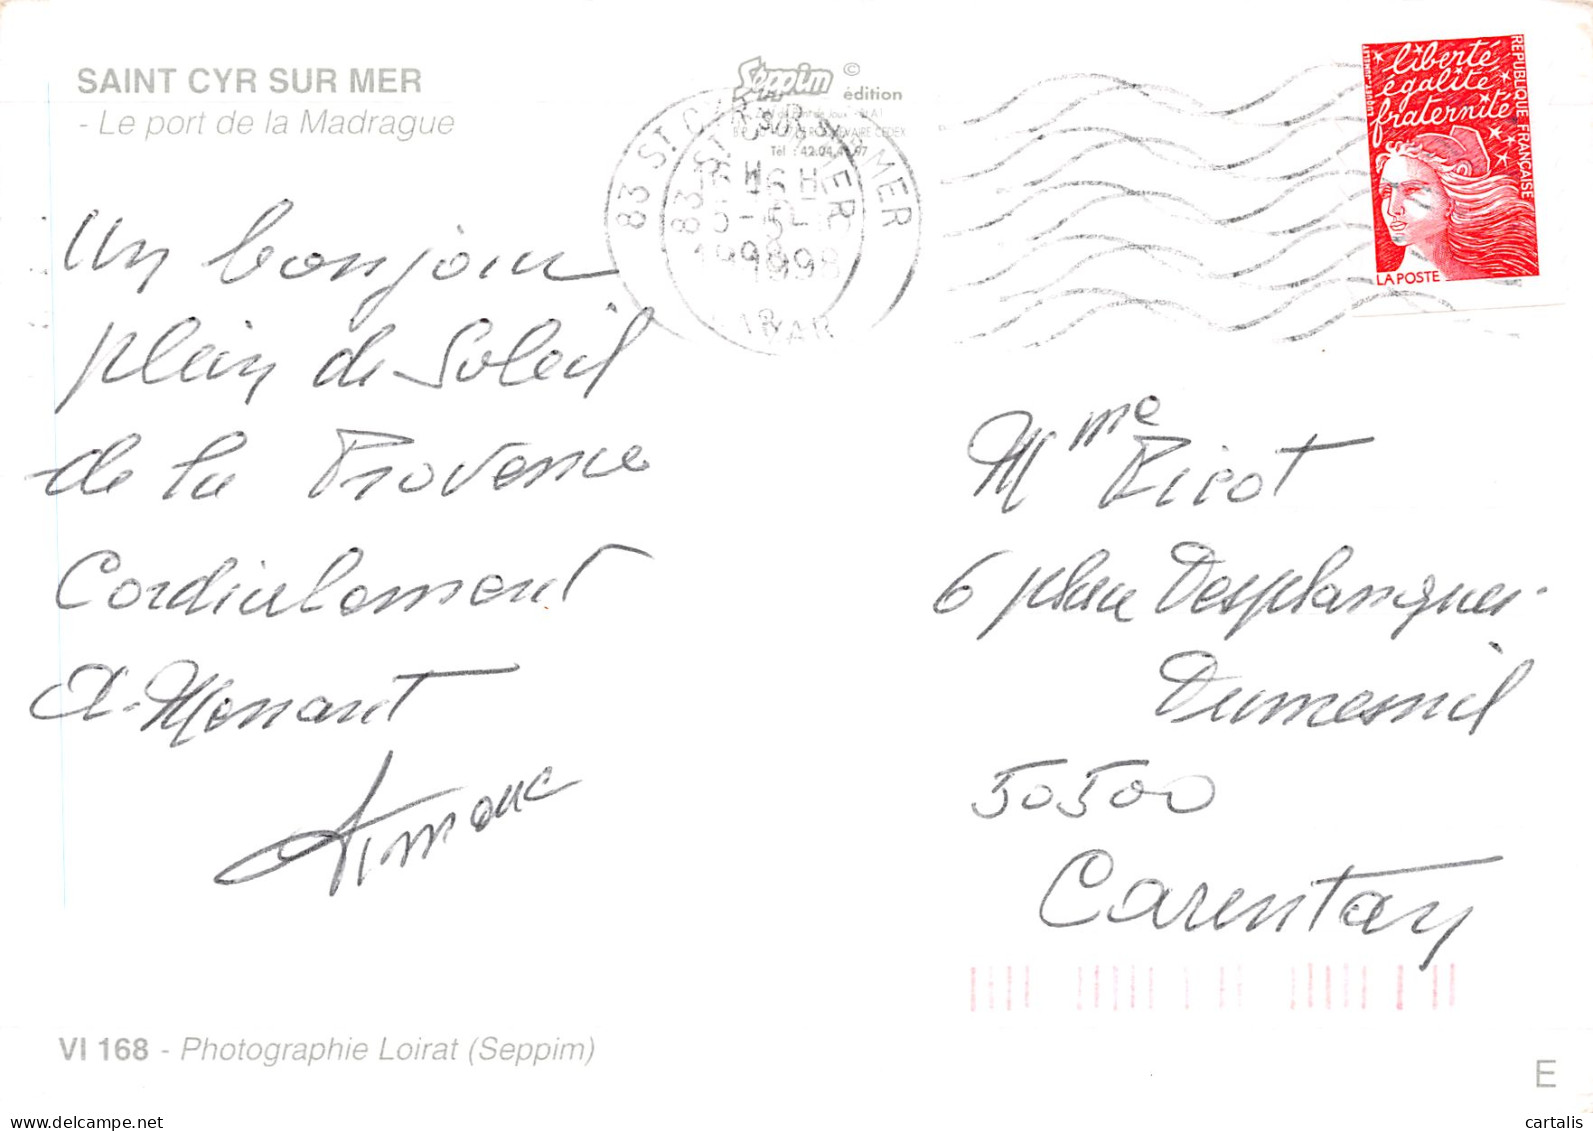 SAINT CYR SUR MER
- Le port de la Madrague
Seppim ©
édition
Tél : 42.04.
83 ST CYR SUR MER
16 H
5-
1998
VAR
liberté
égalité
fraternité
RÉPUBLIQUE FRANÇAISE
LA POSTE
Un bonjour
plein de Soleil
de la Provence
Cordialement
A. Monant
Simone
Mme Picot
6 place Desplanques-
Dumesnil
50500
Carentan
VI 168 - Photographie Loirat (Seppim)
E
cartalis
delcampe.net